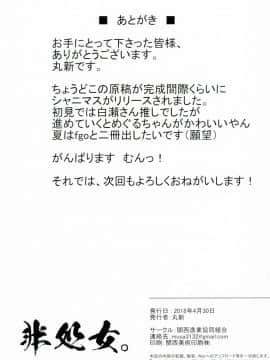 ■ あとがき ■
お手にとって下さった皆様、
ありがとうございます。
丸新です。
ちょうどこの原稿が完成間際くらいに
シャニマスがリリースされました。
初見では白瀬さん推しでしたが
進めていくとめぐるちゃんがかわいいやん
夏はfgoと二冊出したいです(願望)
がんばります むんっ！
それでは、次回もよろしくおねがいします！
発行日：2018年4月30日
発行者：丸新
サークル：関西漁業協同組合
連絡先：musa3132@gmail.com
印刷：関西美術印刷㈱
非処女。